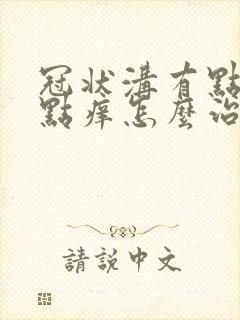 冠狀溝有點
點痒怎麼治
請說中文